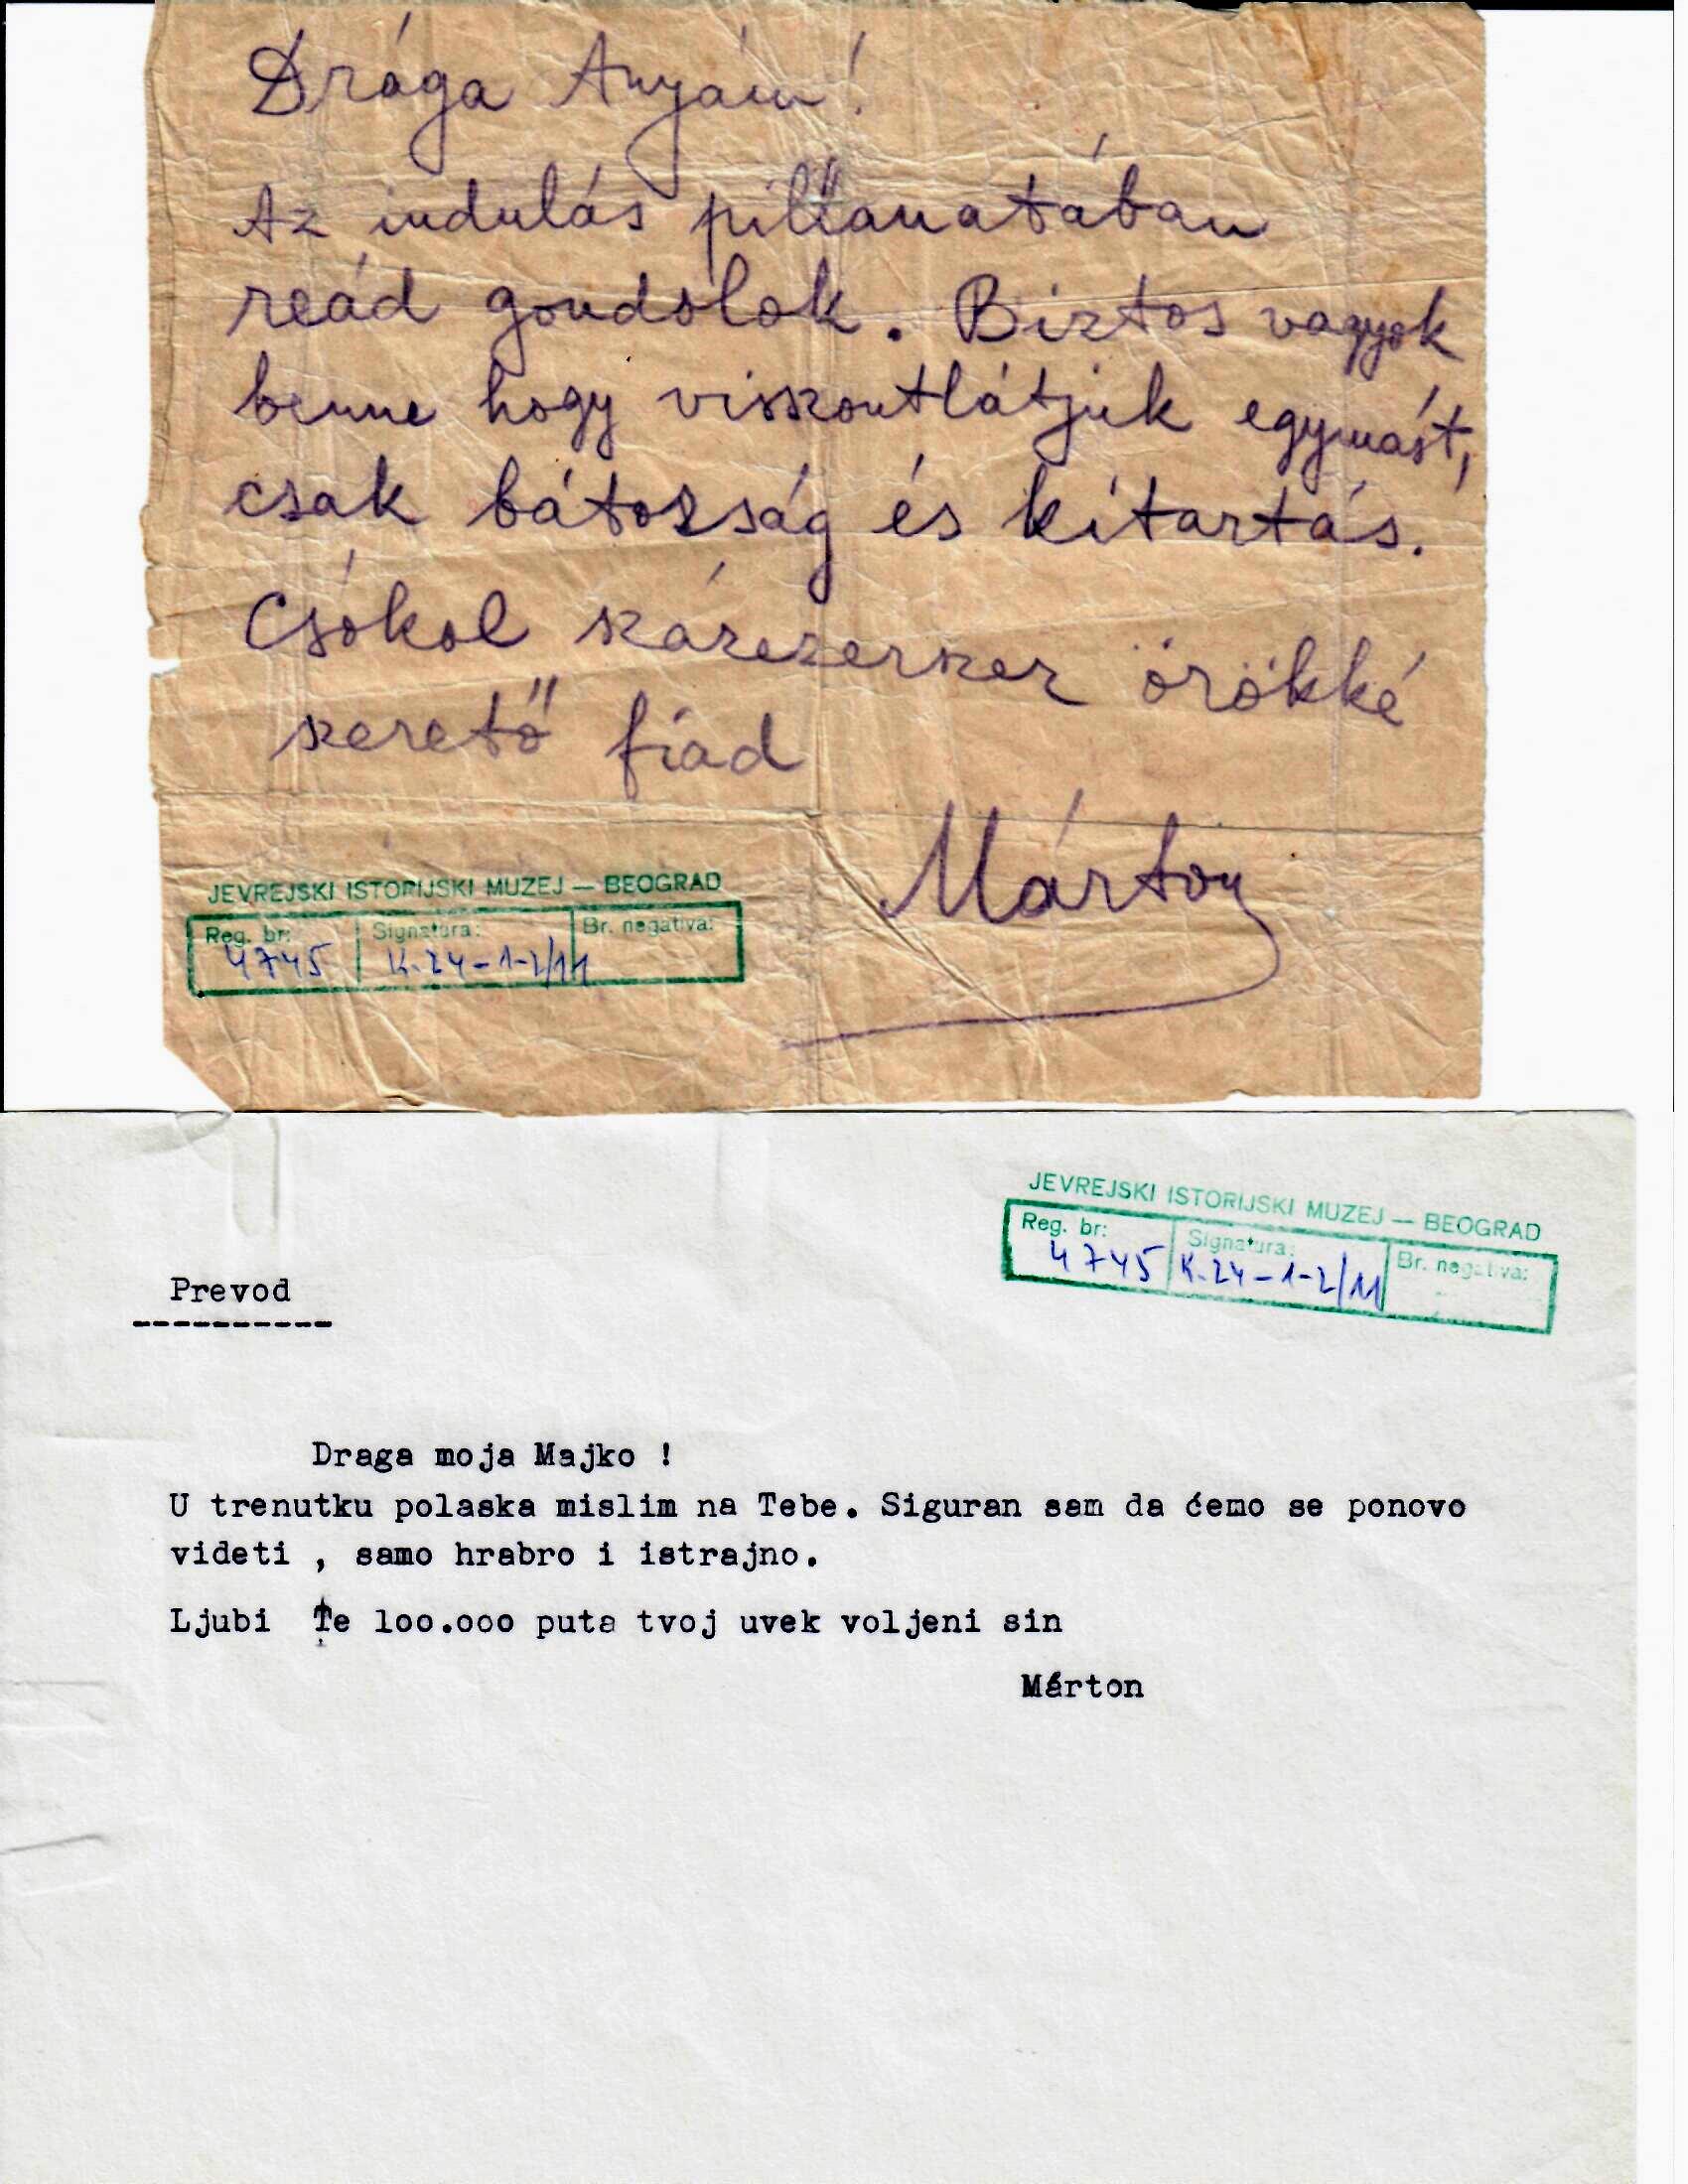 Drága Anyám!
Az indulás pillanatában
reád gondolok. Biztos vagyok
benne hogy viszontlátjuk egymást,
csak bátorság és kitartás.
Csókol százezerszer örökké
szerető fiad
Márton
JEVREJSKI ISTORIJSKI MUZEJ — BEOGRAD
Reg. br: Signatura: Br. negativa:
4745 K.24-1-2/11
JEVREJSKI ISTORIJSKI MUZEJ — BEOGRAD
Reg. br: Signatura: Br. negativa:
4745 K.24-1-2/11
Prevod
----------
Draga moja Majko !
U trenutku polaska mislim na Tebe. Siguran sam da ćemo se ponovo
videti , samo hrabro i istrajno.
Ljubi Te loo.ooo puta tvoj uvek voljeni sin
Márton